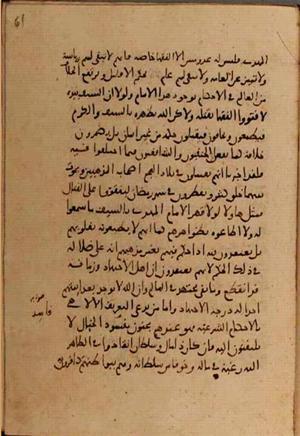 المهدى فليس له عدو مبين الا الفقها خاصة فانهم لا تبقى لهم رياسة
ولا تمييز عن العامة ولا يبقى لهم علم بحكم الا قليل ويرتفع الخلاف
من العالم فى الاحكام بوجود هذا الامام ولولا ان السيف بيده
لافتوا الفقها بقتله ولاكن الله يظهره بالسيف والكرم
فيطمعون ويخافون فيقبلون حكمه من غير ايمان بل يضمرون
خلافه كما يفعل الحنفيون والشافعيون فيما اختلفوا فيه
فلقد اخبرنا انهم يقتتلون فى بلاد العجم اصحاب المذهبين ويموت
بينهما خلق كثير ويفطرون فى شهر رمضان ليتقووا على القتال
مثل هاولا لولا قهر الامام المهدى بالسيف ما سمعوا
له ولا اطاعوه بظواهرهم كما انهم لا يطيعونه بقلوبهم
بل يعتقدون فيه اذا حكم فيهم بغير مذهبهم انه على ضلالة
فى ذلك الحكم لانهم يعتقدون ان اهل الاجتهاد وزمانه
قد انقطع وما بقى مجتهد فى العالم وان الله لا يوجد بعد ايمتهم
احدا له درجة الاجتهاد واما من يدعى التعريف الالاهى
بالاحكام الشرعية فهو عندهم مجنون مفسود الخيال لا
يلتفتون اليه فان كان ذا مال وسلطان انقادوا فى الظاهر
اليه رغبة فى ماله وخوفا من سلطانه وهم ببواطنهم كافرون